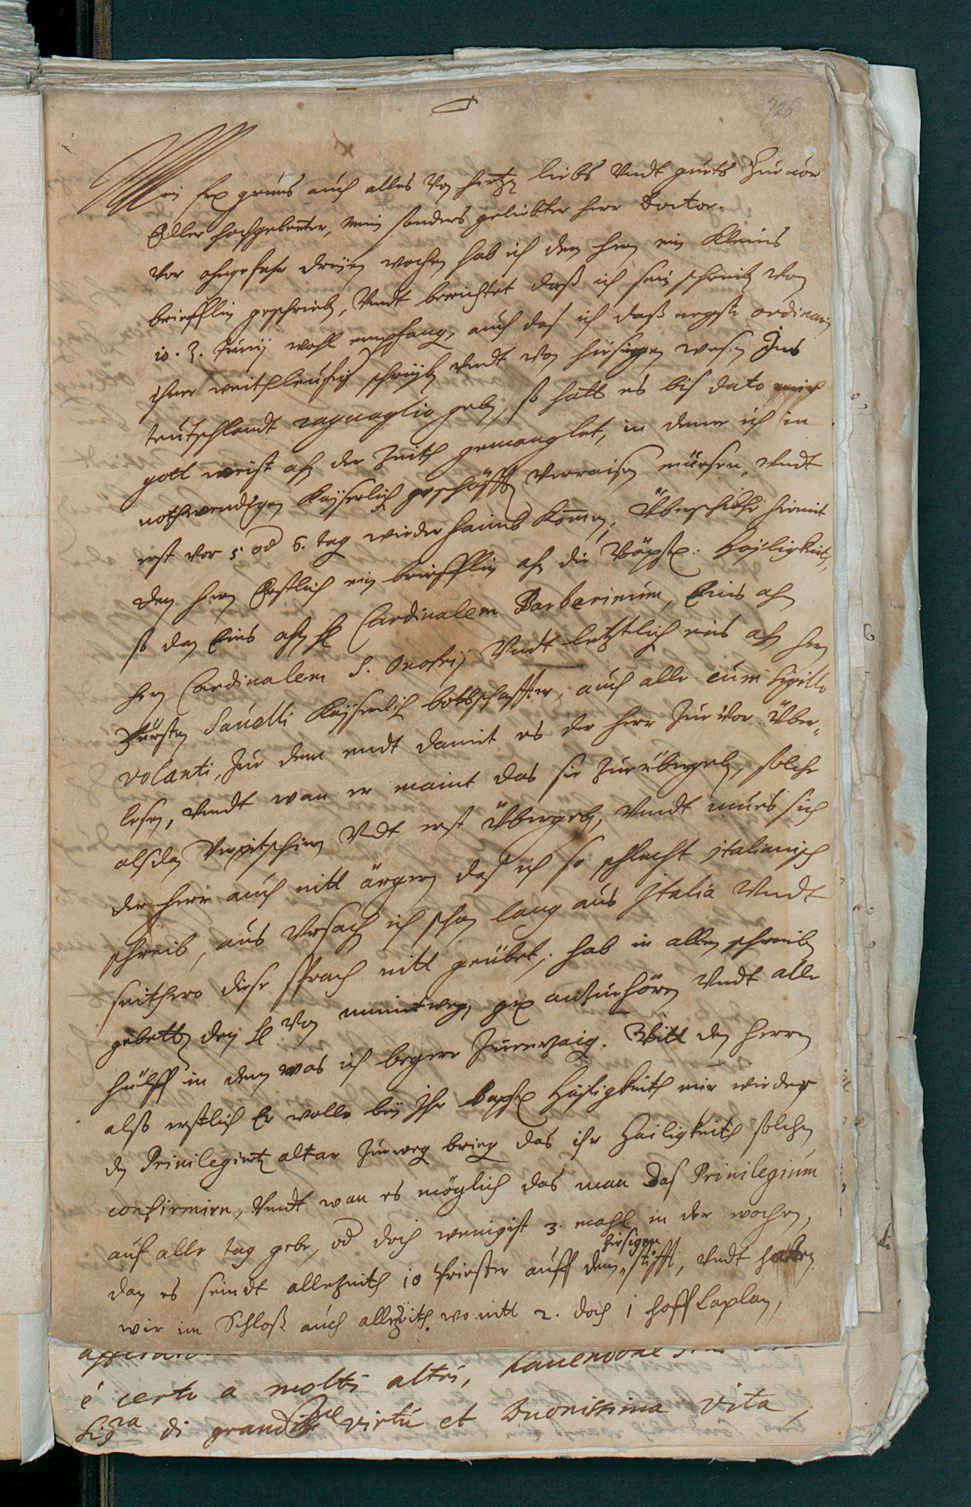 726
Mein fr. grues auch alles von hertzen liebs undt guets zuvor
Edler hochgelerter, mein sonders geliebter herr Doctor.
Vor ohngefahr dreyen wochen hab ich dem herrn ein kleines
briefflin geschrieben, undt berichtet daß ich sein schreiben vom
10. Junij wohl empfangen, auch das ich daß negste ordinari
ihme weitleufig schreiben undt von hiesigem wesen Ins
teutschlandt raguaglio geben, so hatt es bis dato mich
gott weist ahn der Zeith gemanglet, in deme ich in
nothwendigen Kayserlichen geschäfften verraisen müesen, undt
erst vor 5 od 6. tag wieder hauus komen, Überschickhe hiemit
dem hern Erstlich ein briefflin ahn die Bäpstl. Heyligkeit,
so dan Eins ahn h. Cardinalem Barberinum, Eins ahn
hern Cardinalem S. Onofrij undt letztlich eins ahn hern
Fürsten Savelli Kayserlich bottschaffter, auch alle cum sigillo
volanti, zue dem endt damit es der herr zuvor über-
lesen, undt wan er meint das sie zue übergeben, solche
alsdan verpitschieren undt erst übergeben, undt mues sich
der herr auch nitt ärgern das ich so schlecht italianisch
schreib, aus ursach ich schon lang aus Italia undt
seithero diese sprach nitt geübet, hab in allen schreiben
gebetten den h. von meinetwegen gern anzuehören undt alle
hülff in dem was ich begere zuerzaigen. Bitt den herrn
alß erstlich Er wolle bey Ihr bapstl Heyligkeith mir wieder
den Privilegierten altar zuwegen bringen das ihr Heiligkeith solchen
confirmiren, undt wan es möglich das man das Privilegium
auf alle tag gebe, od doch wenigist 3. mahl in der wochen,
dan es seindt allezeith 10 Priester auff dem hiesigen stifft, undt haben
wir im Schloß auch allezeith wo nitt 2. doch 1 hoff Caplan,
é certo a molti altri,
Sigra di grandissime virtù et buonissima vita,